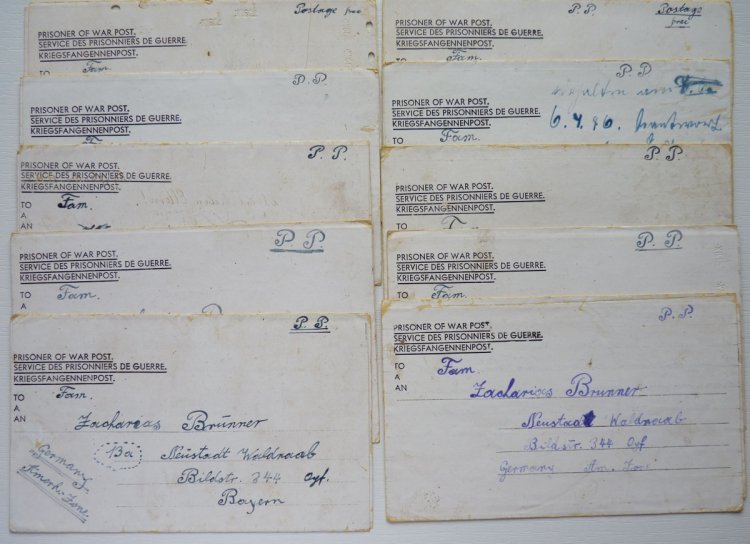 Postage frei
PRISONER OF WAR POST.
SERVICE DES PRISONNIERS DE GUERRE.
KRIEGSFANGENNENPOST.
TO Fam.
P. P.
PRISONER OF WAR POST.
SERVICE DES PRISONNIERS DE GUERRE.
KRIEGSFANGENNENPOST.
P. P.
PRISONER OF WAR POST.
SERVICE DES PRISONNIERS DE GUERRE.
KRIEGSFANGENNENPOST.
TO Fam.
A
AN
P P.
PRISONER OF WAR POST.
SERVICE DES PRISONNIERS DE GUERRE.
KRIEGSFANGENNENPOST.
TO Fam.
A
P. P.
PRISONER OF WAR POST.
SERVICE DES PRISONNIERS DE GUERRE.
KRIEGSFANGENNENPOST.
TO Fam.
A
AN
Zacharias Brünner
13a Neustadt Waldnaab
Bildstr. 344 Opf.
Bayern
Germany
Amerik. Zone
P. P. Postage
frei
PRISONER OF WAR POST.
SERVICE DES PRISONNIERS DE GUERRE.
KRIEGSFANGENNENPOST.
TO Fam.
P P
erhalten am
PRISONER OF WAR POST.
SERVICE DES PRISONNIERS DE GUERRE.
KRIEGSFANGENNENPOST.
6.4.46. Beantwort
TO Fam.
P. P.
PRISONER OF WAR POST.
SERVICE DES PRISONNIERS DE GUERRE.
KRIEGSFANGENNENPOST.
TO
A
P. P.
PRISONER OF WAR POST.
SERVICE DES PRISONNIERS DE GUERRE.
KRIEGSFANGENNENPOST.
TO Fam.
P. P.
PRISONER OF WAR POST.
SERVICE DES PRISONNIERS DE GUERRE.
KRIEGSFANGENNENPOST.
TO Fam.
A
AN
Zacharias Brunner
Neustadt Waldnaab
Bildstr. 344 Opf
Germany Am. Zone